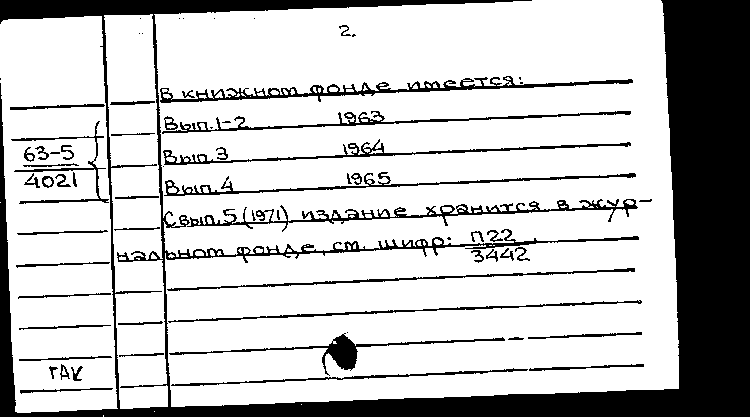 2.
В книжном фонде имеется:
Вып. 1-2 1963
63-5
4021
Вып. 3 1964
Вып. 4 1965
С вып. 5 (1971) издание хранится в жур-
нальном фонде, см. шифр: П22
3442
ГАК